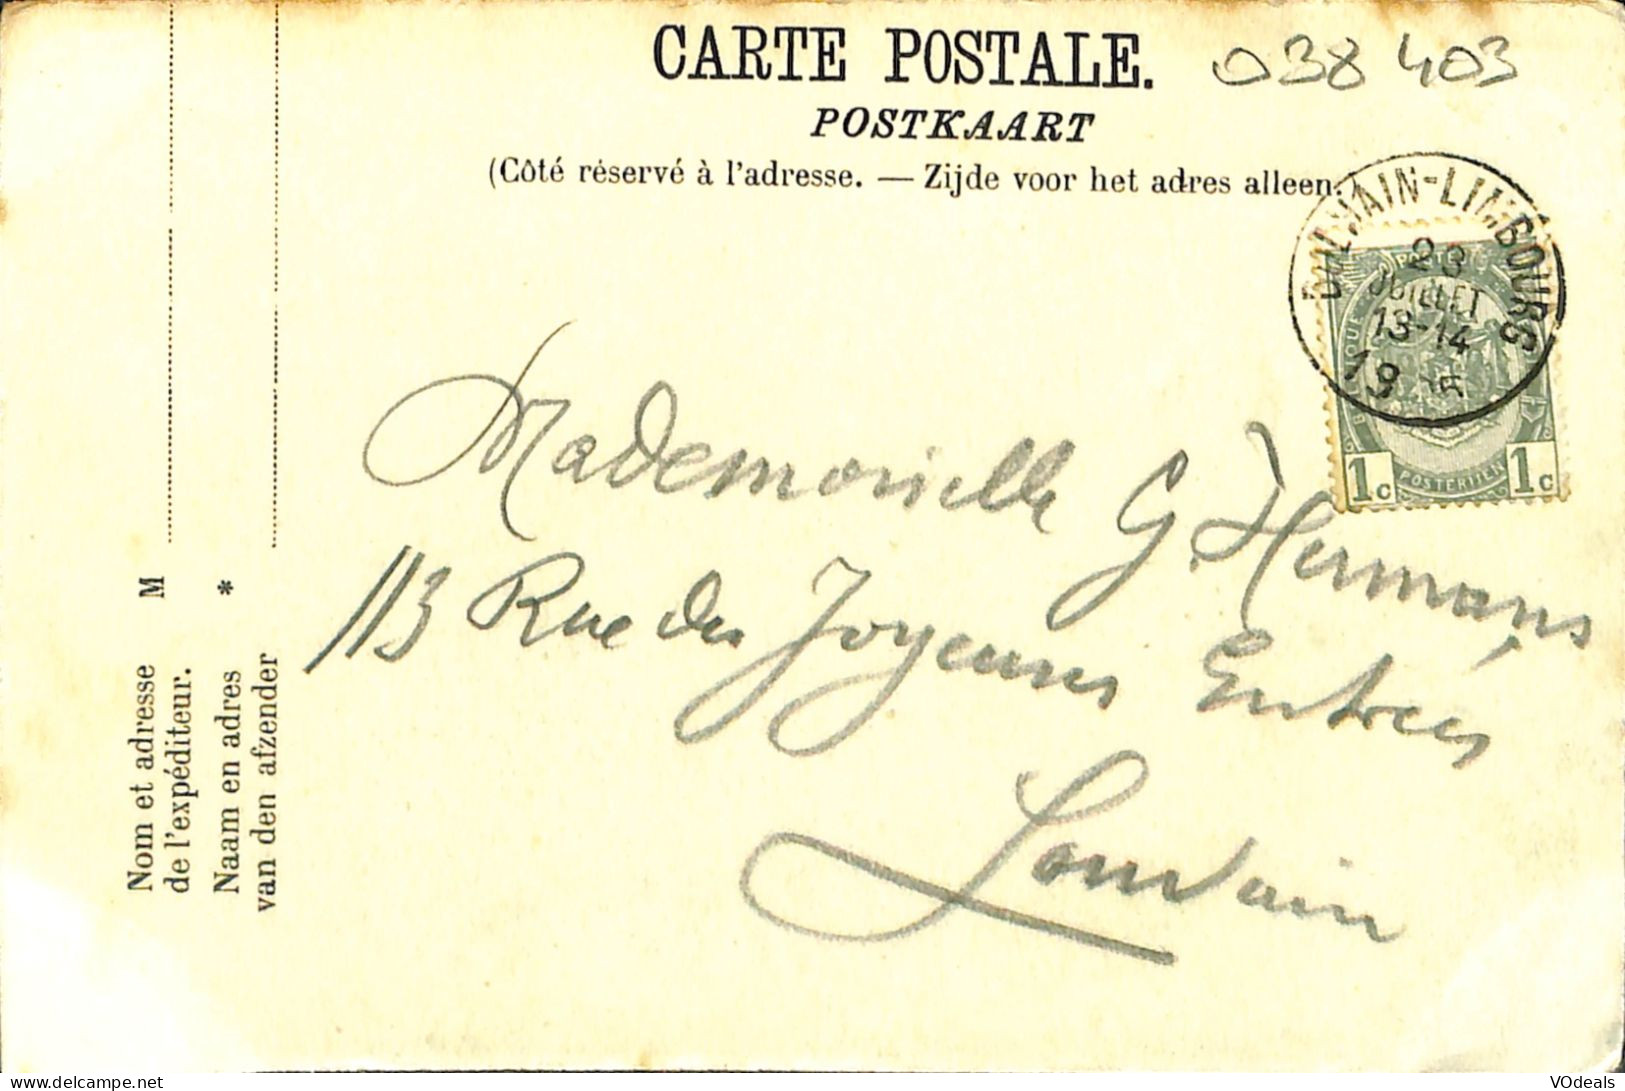 CARTE POSTALE.
038 403
POSTKAART
(Côté réservé à l'adresse. — Zijde voor het adres alleen.
DOLHAIN-LIMBOURG
23
JUILLET
13-14
19 05
POSTERIJEN
1c 1c
Mademoiselle G. Hermans
113 Rue des Joyeuses Entrées
Louvain
M
Nom et adresse
de l'expéditeur.
*
Naam en adres
van den afzender
http://www.delcampe.net
VOdeals